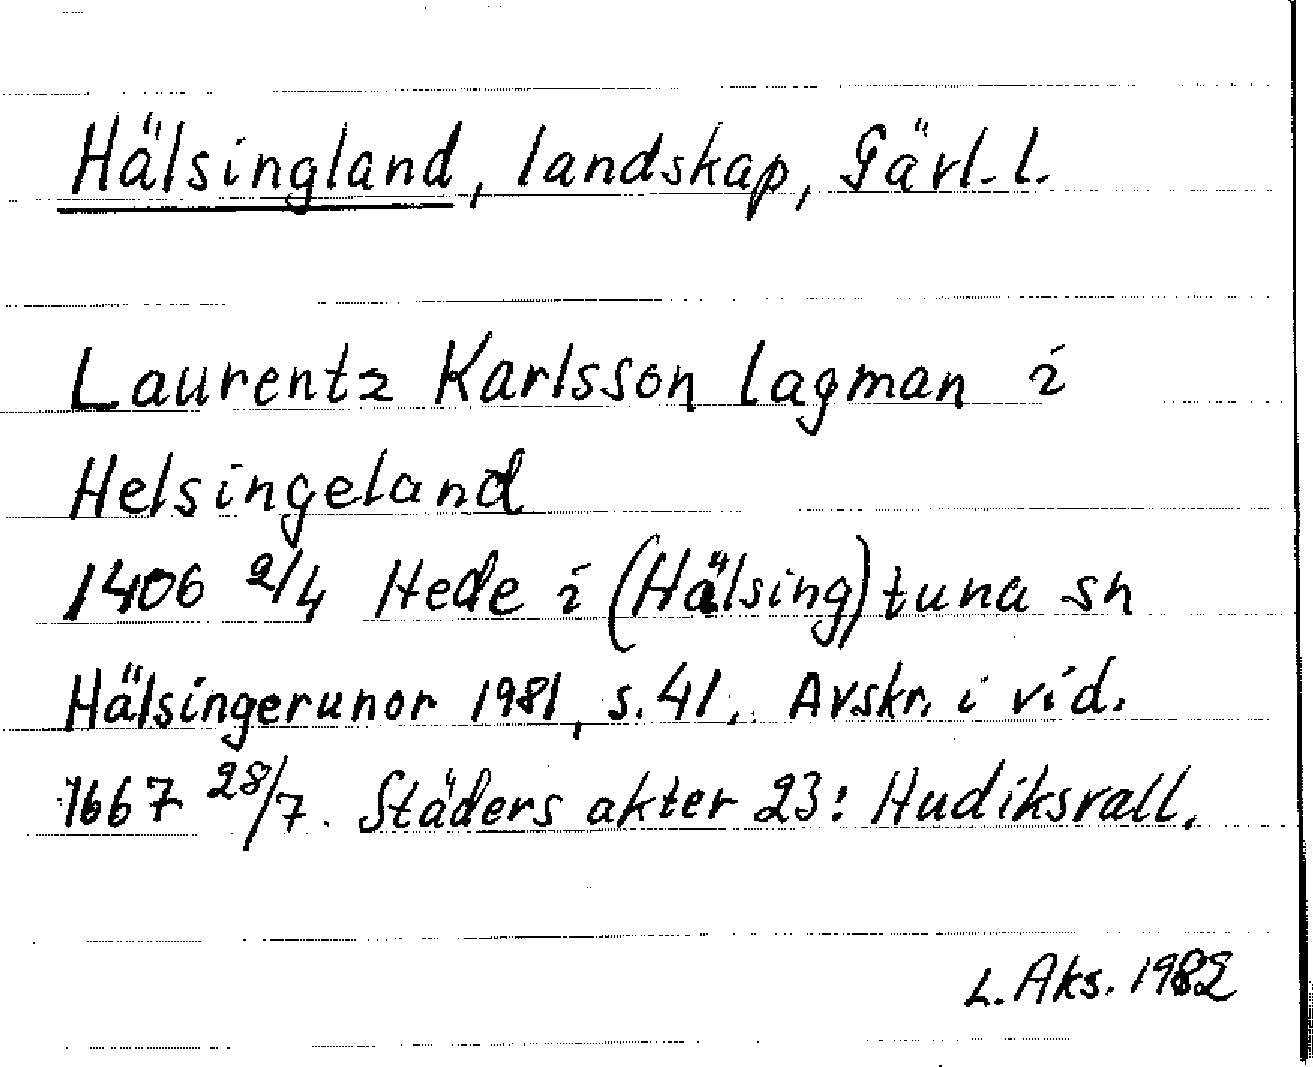 Hälsingland, landskap, Gävl. l.
Laurentz Karlsson lagman i
Helsingeland
1406 2/4 Hede i (Hälsing)tuna sn
Hälsingerunor 1981, s. 41. Avskr. i vid.
1667 28/7. Städers akter 23: Hudiksvall.
L. Aks. 1982